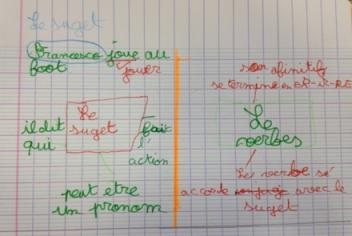 Le suget
Francesco joue au
foot
jouer
Le
suget
il dit
qui
fait
l'
action
peut etre
un pronom
son afinitif
se termine en ER-IR-RE
Le
verbes
Les verbe sé
accorde avec le
suget